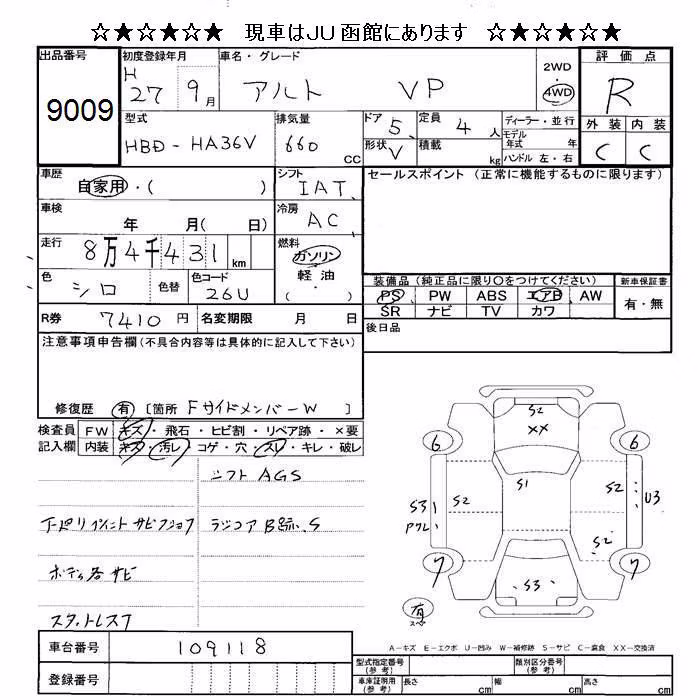 ☆★☆★☆★ 現車はJU函館にあります ☆★☆★☆★
出品番号
9009
初度登録年月
H 27 9月
車名・グレード
アルト VP
2WD
4WD
評価点
R
外装 内装
C C
型式
HBD-HA36V
排気量
660 CC
ドア 5
定員 4 人
形状 V
積載 kg
ディーラー・並行
モデル年式 年
ハンドル 左・右
車歴
自家用・( )
シフト
IAT
セールスポイント (正常に機能するものに限ります)
車検
年 月( 日)
冷房
AC
走行
8万4千431km
燃料
ガソリン
軽油
( )
色
シロ
色替
色コード
26U
装備品 (純正品に限り○をつけてください)
PS PW ABS エアB AW
SR ナビ TV カワ
新車保証書
有・無
R券 7410 円
名変期限 月 日
後日品
注意事項申告欄(不具合内容等は具体的に記入して下さい)
修復歴 有 [箇所 FサイドメンバーW ]
検査員記入欄
FW キズ・飛石・ヒビ割・リペア跡・×要
内装 キズ・汚レ・コゲ・穴・スレ・キレ・破レ
シフトAGS
下廻り サビ
ラジコアB跡、S
ボディ各サビ
スタットレス7
S2
XX
6
6
S1
S2
S2
S31
U3
S2
7
7
S3
有
スペ
A-キズ E-エクボ U-凹み W-補修跡 S-サビ C-腐食 XX-交換済
車台番号
109118
登録番号
型式指定番号(参考)
類別区分番号(参考)
車庫証明用(参考)
長さ cm
幅 cm
高さ cm